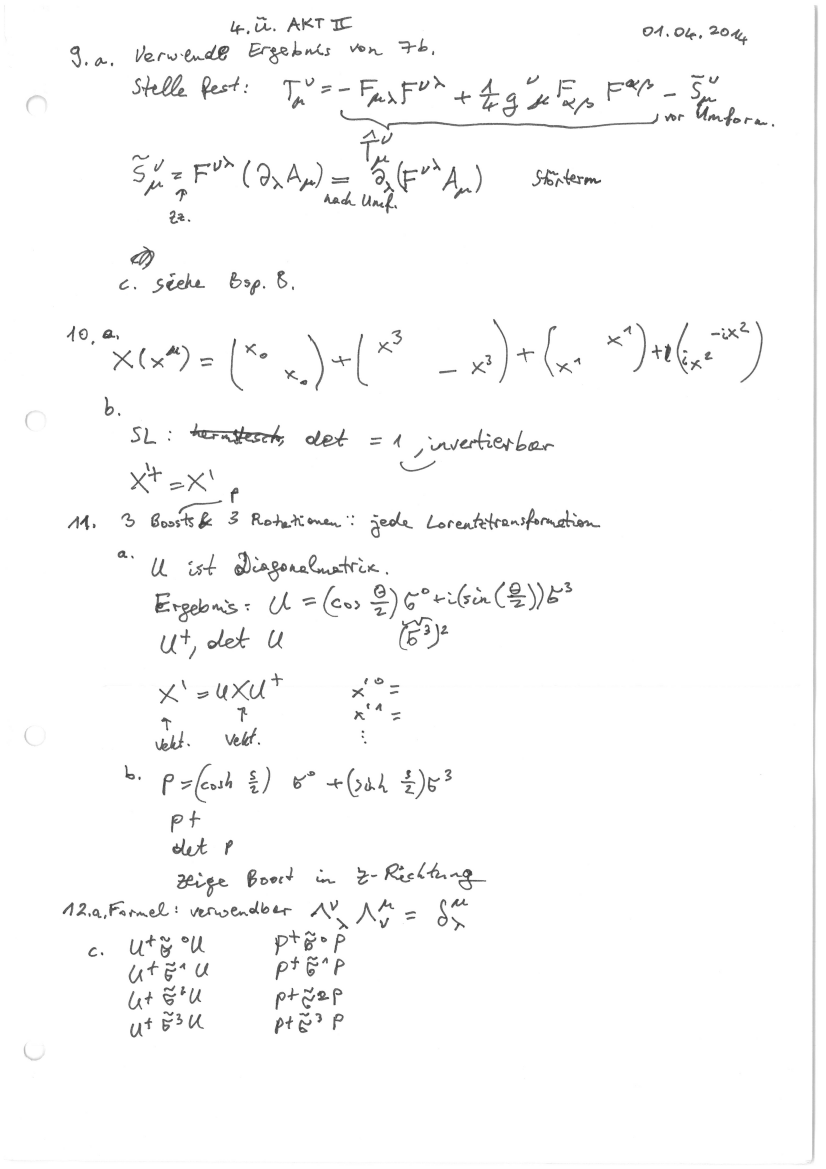 4. Ü. AKT II 01.04.2014
9.a. Verwende Ergebnis von 7b.
Stelle fest: T_μ^ν = - F_μλ F^νλ + 1/4 g^ν_μ F_αβ F^αβ - S̃_μ^ν
vor Umform.
T̂_μ^ν
S̃_μ^ν = F^νλ (∂_λ A_μ) = ∂_λ (F^νλ A_μ) Störterm
↑ nach Umf.
zz.
c. siehe Bsp. 8.
10. a.
X(x^μ) = (x_0 x_0) + (x^3 - x^3) + (x^1 x^1) + (-ix^2 ix^2)
b.
SL : hermitesch, det = 1, invertierbar
X'† = X'
P
11. 3 Boosts & 3 Rotationen : jede Lorentztransformation
a. U ist Diagonalmatrix.
Ergebnis: U = (cos θ/2) σ^0 + i(sin(θ/2)) σ^3
U†, det U (σ^3)^2
X' = UXU† x'^0 =
↑ ↑ x'^1 =
vekt. vekt. ⋮
b. P = (cosh ζ/2) σ^0 + (sinh ζ/2) σ^3
P†
det P
zeige Boost in z-Richtung
12.a. Formel: verwendbar Λ^ν_λ Λ_ν^μ = δ_λ^μ
c. U† σ̃^0 U P† σ̃^0 P
U† σ̃^1 U P† σ̃^1 P
U† σ̃^2 U P† σ̃^2 P
U† σ̃^3 U P† σ̃^3 P